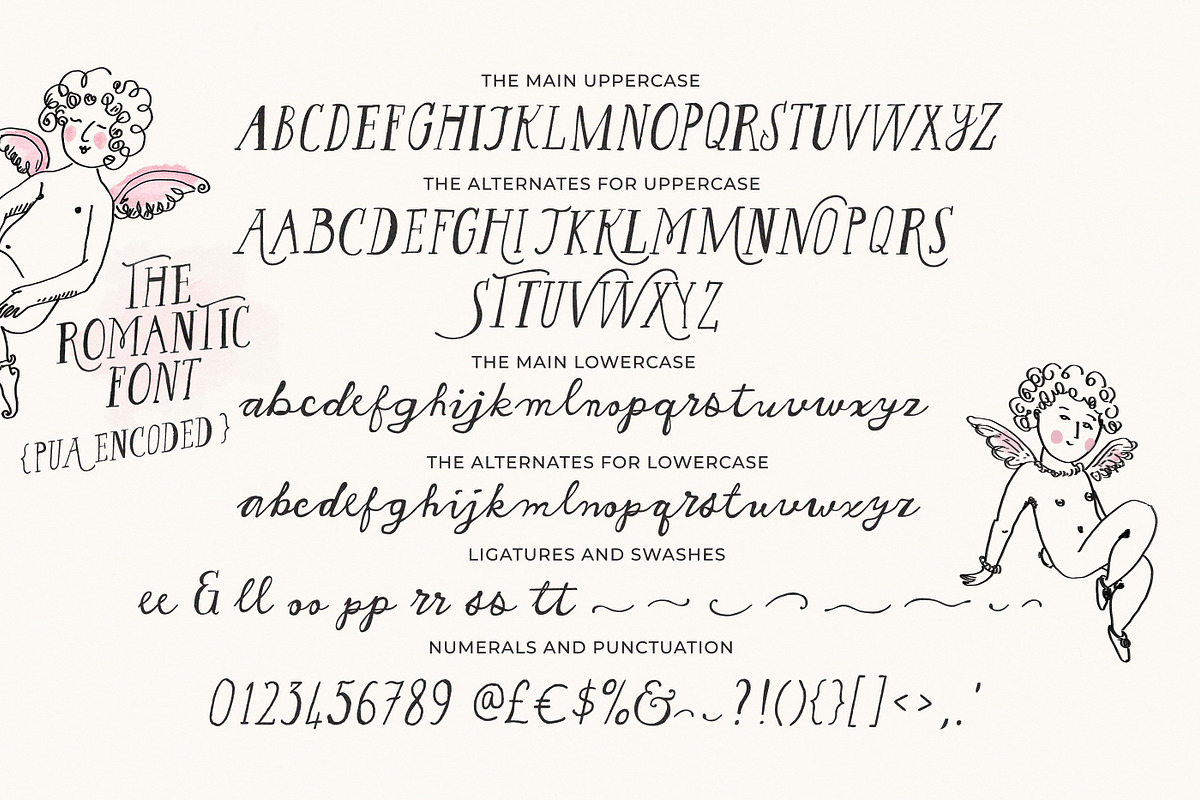 THE MAIN UPPERCASE
ABCDEFGHIJKLMNOPQRSTUVWXYZ
THE ALTERNATES FOR UPPERCASE
AABCDEFGHIJKKLMMNNOPQRS
STTUVWXYZ
THE MAIN LOWERCASE
abcdefghijkmlnopqrstuvwxyz
THE ALTERNATES FOR LOWERCASE
abcdefghijkmlnopqrstuvwxyz
LIGATURES AND SWASHES
ee & ll oo pp rr ss tt
NUMERALS AND PUNCTUATION
0123456789 @£€$%&?!(){}[]<>,.'
THE
ROMANTIC
FONT
{PUA ENCODED}